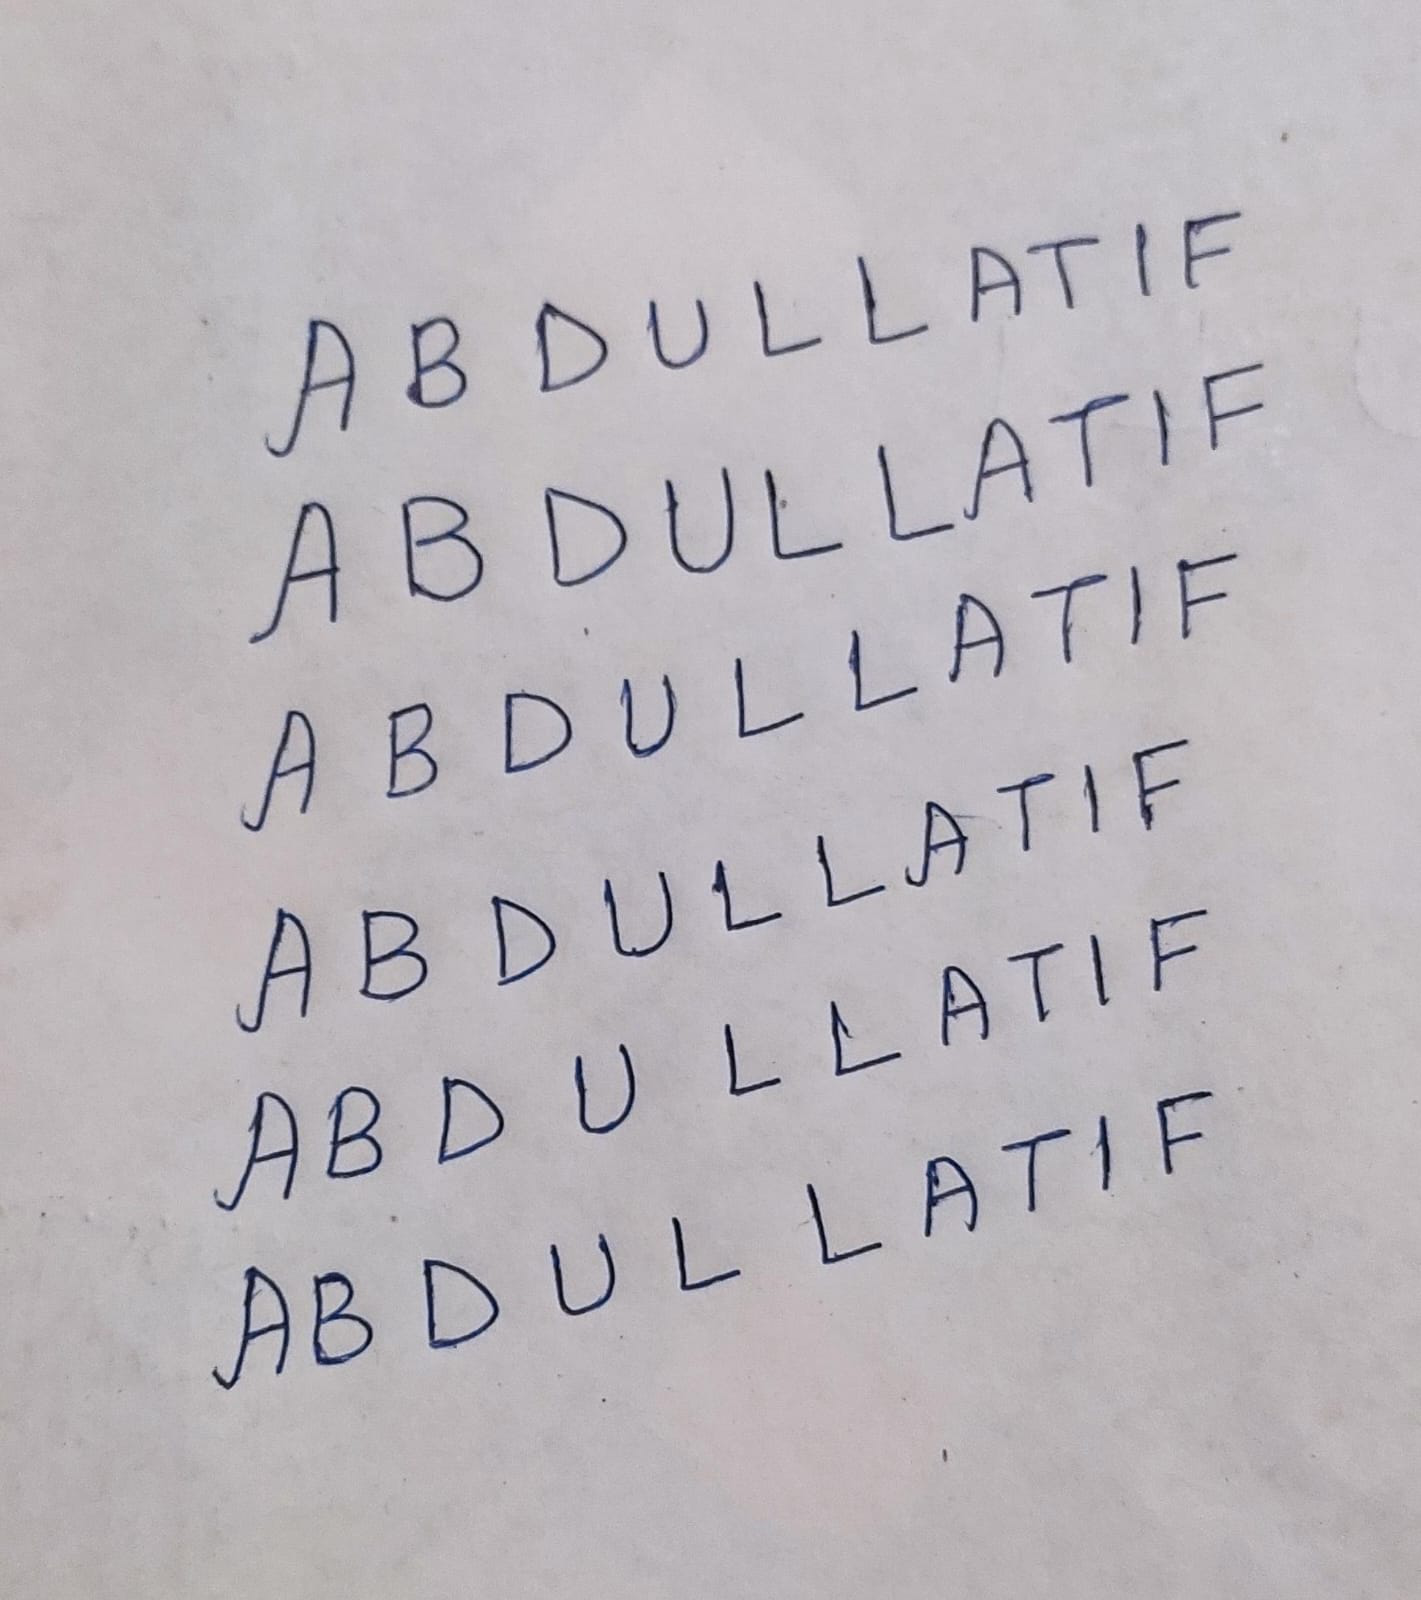 ABDULLATIF
ABDULLATIF
ABDULLATIF
ABDULLATIF
ABDULLATIF
ABDULLATIF